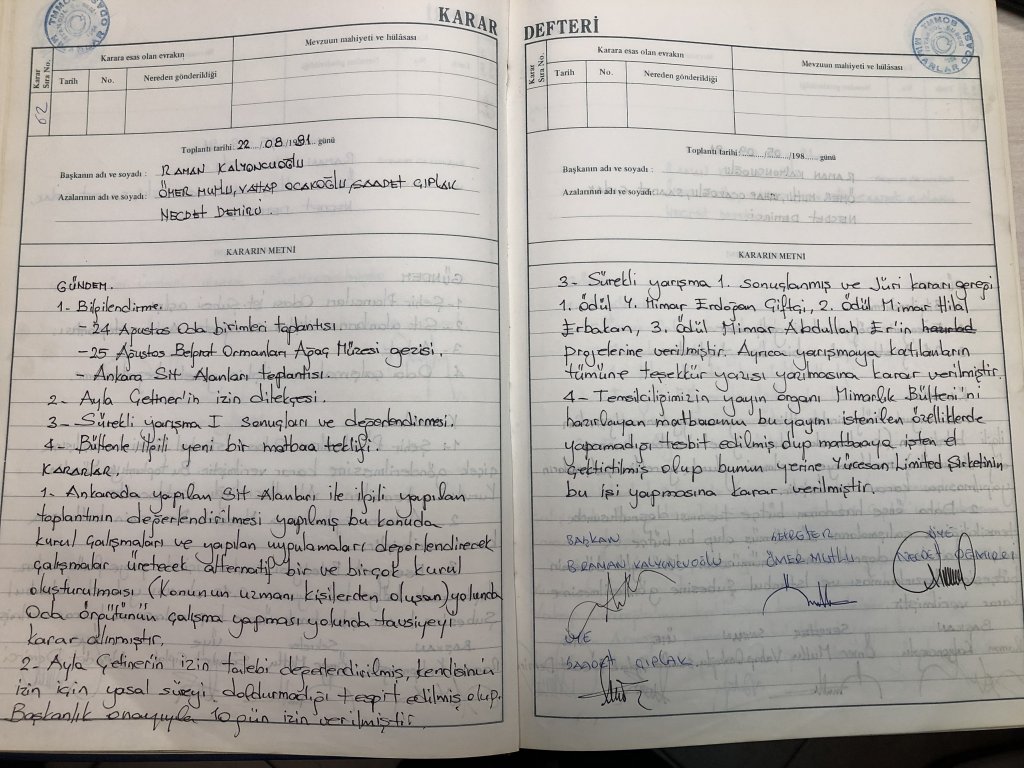 KARAR
Karar Sıra No.
Karara esas olan evrakın
Mevzuun mahiyeti ve hülâsası
Tarih No. Nereden gönderildiği
02
Toplantı tarihi: 22 / 08 / 1991 günü
Başkanın adı ve soyadı : RAMAN KALYONCUOĞLU
Azalarının adı ve soyadı : ÖMER MUTLU, VAHAP OCAKOĞLU, SAADET ÇIPLAK
NECDET DEMİRCİ
KARARIN METNİ
GÜNDEM.
1- Bilgilendirme.
- 24 Ağustos Oda birimleri toplantısı
- 25 Ağustos Belgrat Ormanları Ağaç Müzesi gezisi.
- Ankara Sit Alanları toplantısı.
2- Ayla Çetiner'in izin dilekçesi.
3- Sürekli yarışma I sonuçları ve değerlendirmesi.
4- Bültenle ilgili yeni bir matbaa teklifi.
KARARLAR.
1- Ankarada yapılan Sit Alanları ile ilgili yapılan
toplantının değerlendirilmesi yapılmış bu konuda
kurul çalışmaları ve yapılan uygulamaları değerlendirecek
çalışmalar üretecek alternatif bir ve birçok kurul
oluşturulması (Konunun uzmanı kişilerden oluşan) yolunda
Oda örgütünün çalışma yapması yolunda tavsiyeyi
karar alınmıştır.
2- Ayla Çetiner'in izin talebi değerlendirilmiş, kendisinin
izin için yasal süreyi doldurmadığı tespit edilmiş olup.
Başkanlık onayıyla 10 gün izin verilmiştir.
DEFTERİ
Karar Sıra No.
Karara esas olan evrakın
Mevzuun mahiyeti ve hülâsası
Tarih No. Nereden gönderildiği
Toplantı tarihi: / /198 günü
Başkanın adı ve soyadı :
Azalarının adı ve soyadı :
KARARIN METNİ
3- Sürekli yarışma 1. sonuçlanmış ve Jüri kararı gereği
1. Ödül Y. Mimar Erdoğan Çiftçi, 2. Ödül Mimar Hilal
Erbakan, 3. Ödül Mimar Abdullah Er'in
projelerine verilmiştir. Ayrıca yarışmaya katılanların
tümüne teşekkür yazısı yazılmasına karar verilmiştir.
4- Temsilciliğimizin yayın organı Mimarlık Bülteni'ni
hazırlayan matbaanın bu yayını istenilen özelliklerde
yapamadığı tesbit edilmiş olup matbaaya işten el
çektirtilmiş olup bunun yerine Yücesan Limited Şirketinin
bu işi yapmasına karar verilmiştir.
BAŞKAN SEKRETER ÜYE
B.RAMAN KALYONCUOĞLU ÖMER MUTLU NECDET DEMİRCİ
ÜYE
SAADET ÇIPLAK